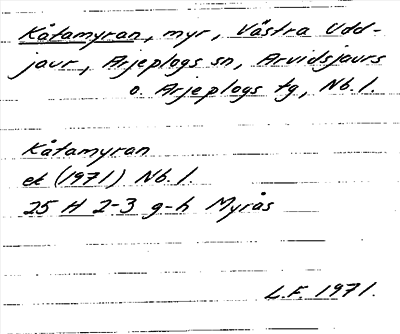 Kåtamyran, myr, Västra Udd-
jaur, Arjeplogs sn, Arvidsjaurs
o. Arjeplogs tg, Nb. l.
Kåtamyran
ek (1971) Nb. l.
25 H 2-3 g-h Myrås
L.F. 1971.